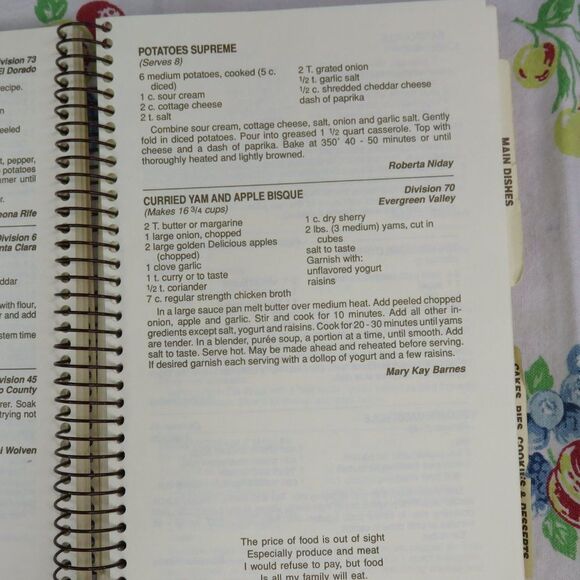 Division 73
El Dorado
recipe.
peeled
t, pepper,
potatoes
mer until
r.
eona Rife
Division 6
nta Clara
ddar
with flour,
and
system time
Division 45
o County
rer. Soak
trying not
i Wolven
POTATOES SUPREME
(Serves 8)
6 medium potatoes, cooked (5 c.
diced)
1 c. sour cream
2 c. cottage cheese
2 t. salt
2 T. grated onion
1/2 t. garlic salt
1/2 c. shredded cheddar cheese
dash of paprika
Combine sour cream, cottage cheese, salt, onion and garlic salt. Gently
fold in diced potatoes. Pour into greased 1 1/2 quart casserole. Top with
cheese and a dash of paprika. Bake at 350° 40 - 50 minutes or until
thoroughly heated and lightly browned.
Roberta Niday
CURRIED YAM AND APPLE BISQUE
(Makes 16 3/4 cups)
Division 70
Evergreen Valley
2 T. butter or margarine
1 large onion, chopped
2 large golden Delicious apples
(chopped)
1 clove garlic
1 t. curry or to taste
1/2 t. coriander
7 c. regular strength chicken broth
1 c. dry sherry
2 lbs. (3 medium) yams, cut in
cubes
salt to taste
Garnish with:
unflavored yogurt
raisins
In a large sauce pan melt butter over medium heat. Add peeled chopped
onion, apple and garlic. Stir and cook for 10 minutes. Add all other in-
gredients except salt, yogurt and raisins. Cook for 20 - 30 minutes until yams
are tender. In a blender, purée soup, a portion at a time, until smooth. Add
salt to taste. Serve hot. May be made ahead and reheated before serving.
If desired garnish each serving with a dollop of yogurt and a few raisins.
Mary Kay Barnes
The price of food is out of sight
Especially produce and meat
I would refuse to pay, but food
Is all my family will eat.
MAIN DISHES
CAKES, PIES, COOKIES & DESSERTS